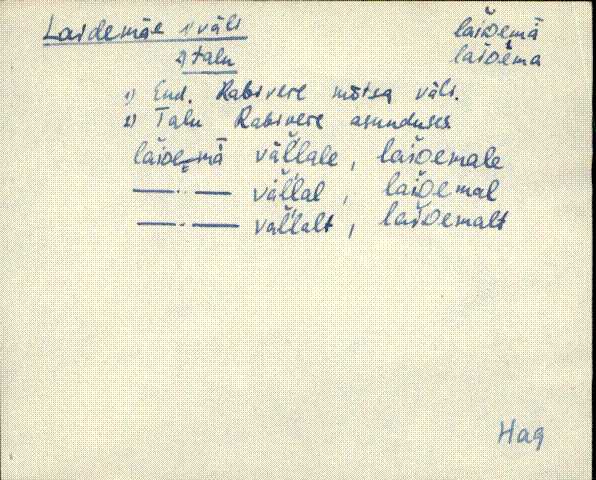 Laidemäe 1) väli
2) talu
laiδemä
laiδema
1) End. Rabivere mõisa väli.
2) Talu Rabivere asunduses
laiδemä väl̆l̆ale, laiδemale
—··— väl̆l̆al, laiδemal
—··— väl̆l̆alt, laiδemalt
Hag